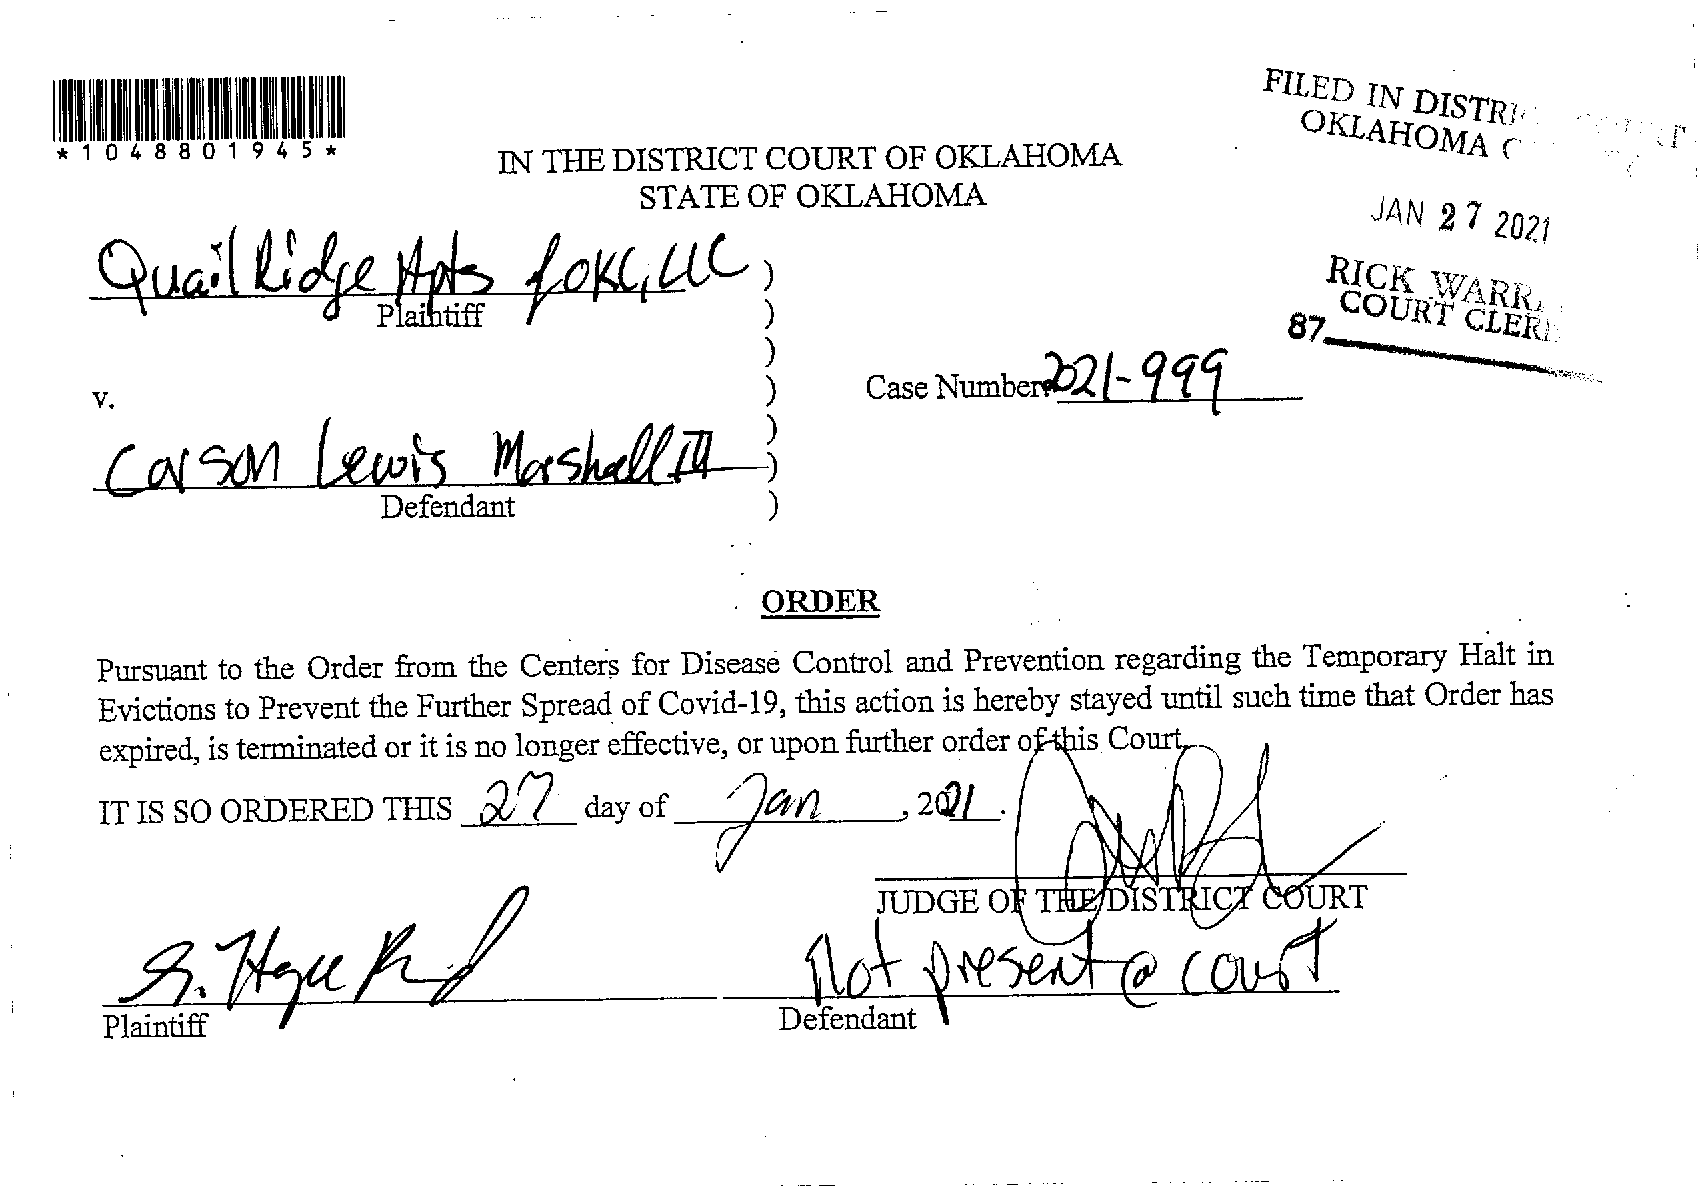 *1048801945*
FILED IN DISTRI
OKLAHOMA C
IN THE DISTRICT COURT OF OKLAHOMA
STATE OF OKLAHOMA
JAN 27 2021
RICK WARR
COURT CLER
87
Quail Ridge Apts of OKC, LLC )
Plaintiff )
)
v. )
Case Number 2021-999
)
Carson Lewis Marshall III )
Defendant )
ORDER
Pursuant to the Order from the Centers for Disease Control and Prevention regarding the Temporary Halt in
Evictions to Prevent the Further Spread of Covid-19, this action is hereby stayed until such time that Order has
expired, is terminated or it is no longer effective, or upon further order of this Court.
IT IS SO ORDERED THIS 27 day of Jan, 2021.
JUDGE OF THE DISTRICT COURT
Not present @ court
Plaintiff
Defendant